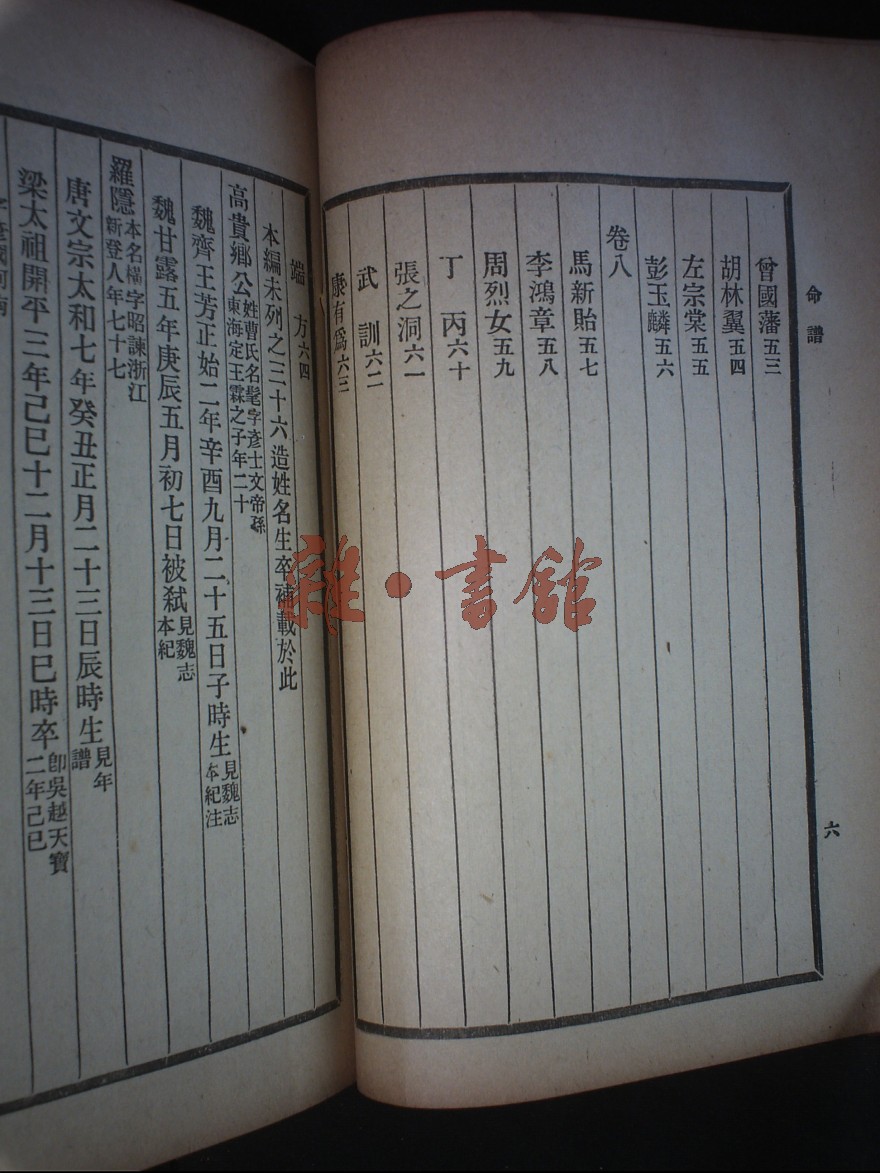 命譜
六
曾國藩五三
胡林翼五四
左宗棠五五
彭玉麟五六
卷八
馬新貽五七
李鴻章五八
周烈女五九
丁丙六十
張之洞六一
武訓六二
康有爲六三
端方六四
本編未列之三十六造姓名生卒補載於此
高貴鄉公姓曹氏名髦字彥士文帝孫東海定王霖之子年二十
魏齊王芳正始二年辛酉九月二十五日子時生見魏志本紀注
魏甘露五年庚辰五月初七日被弒見魏志本紀
羅隱本名橫字昭諫浙江新登人年七十七
唐文宗太和七年癸丑正月二十三日辰時生見年譜
梁太祖開平三年己巳十二月十三日巳時卒卽吳越天寶二年己巳
雜·書館